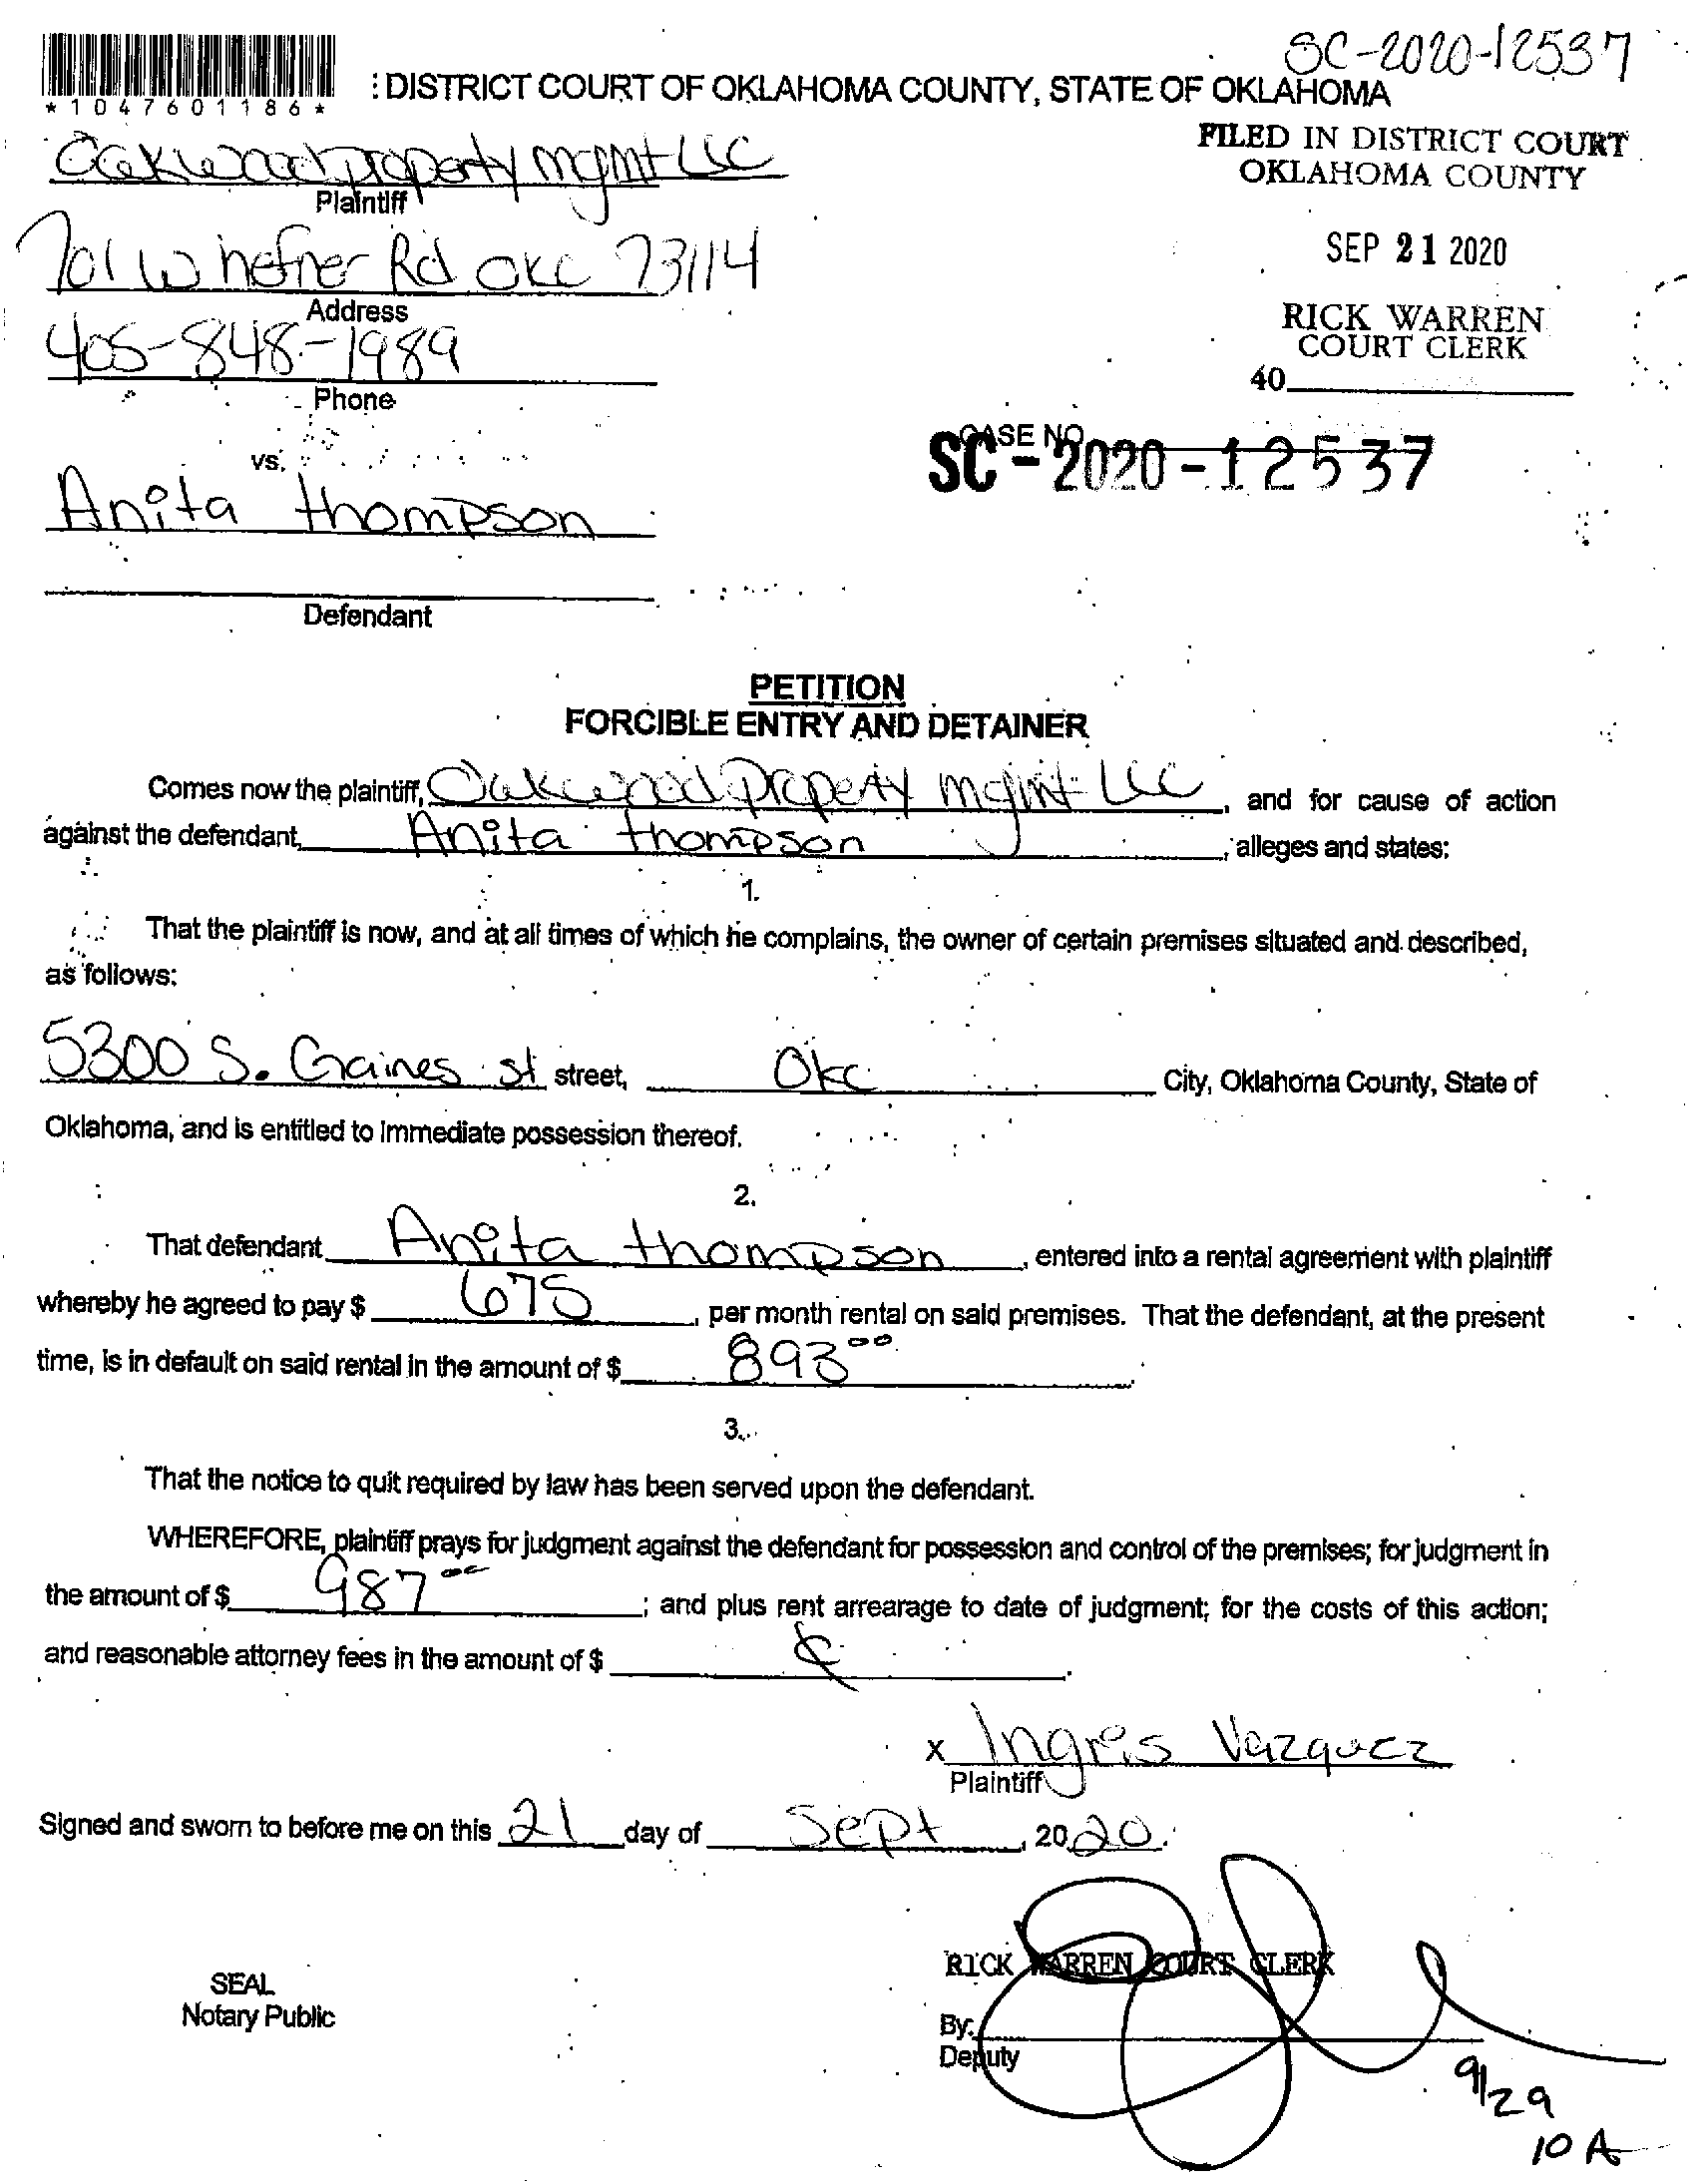 SC-2020-12537
*1047601186*
: DISTRICT COURT OF OKLAHOMA COUNTY, STATE OF OKLAHOMA
FILED IN DISTRICT COURT
OKLAHOMA COUNTY
Oakwood property mgmt LLC
Plaintiff
SEP 21 2020
701 W hefner Rd OKC 73114
Address
RICK WARREN
COURT CLERK
405-848-1989
40
Phone
CASE NO.
SC-2020-12537
vs.
Anita thompson
Defendant
PETITION
FORCIBLE ENTRY AND DETAINER
Comes now the plaintiff, Oakwood Property mgmt LLC, and for cause of action
against the defendant, Anita thompson, alleges and states:
1.
That the plaintiff is now, and at all times of which he complains, the owner of certain premises situated and described,
as follows:
5300 S. Gaines st street, Okc City, Oklahoma County, State of
Oklahoma, and is entitled to immediate possession thereof.
2.
That defendant Anita thompson, entered into a rental agreement with plaintiff
whereby he agreed to pay $ 675, per month rental on said premises. That the defendant, at the present
time, is in default on said rental in the amount of $ 893 00.
3.
That the notice to quit required by law has been served upon the defendant.
WHEREFORE, plaintiff prays for judgment against the defendant for possession and control of the premises; for judgment in
the amount of $ 987 00; and plus rent arrearage to date of judgment; for the costs of this action;
and reasonable attorney fees in the amount of $
x Ingris Vazquez
Plaintiff
Signed and sworn to before me on this 21 day of Sept, 2020.
RICK WARREN COURT CLERK
SEAL
Notary Public
By:
Deputy
9/29
10 A